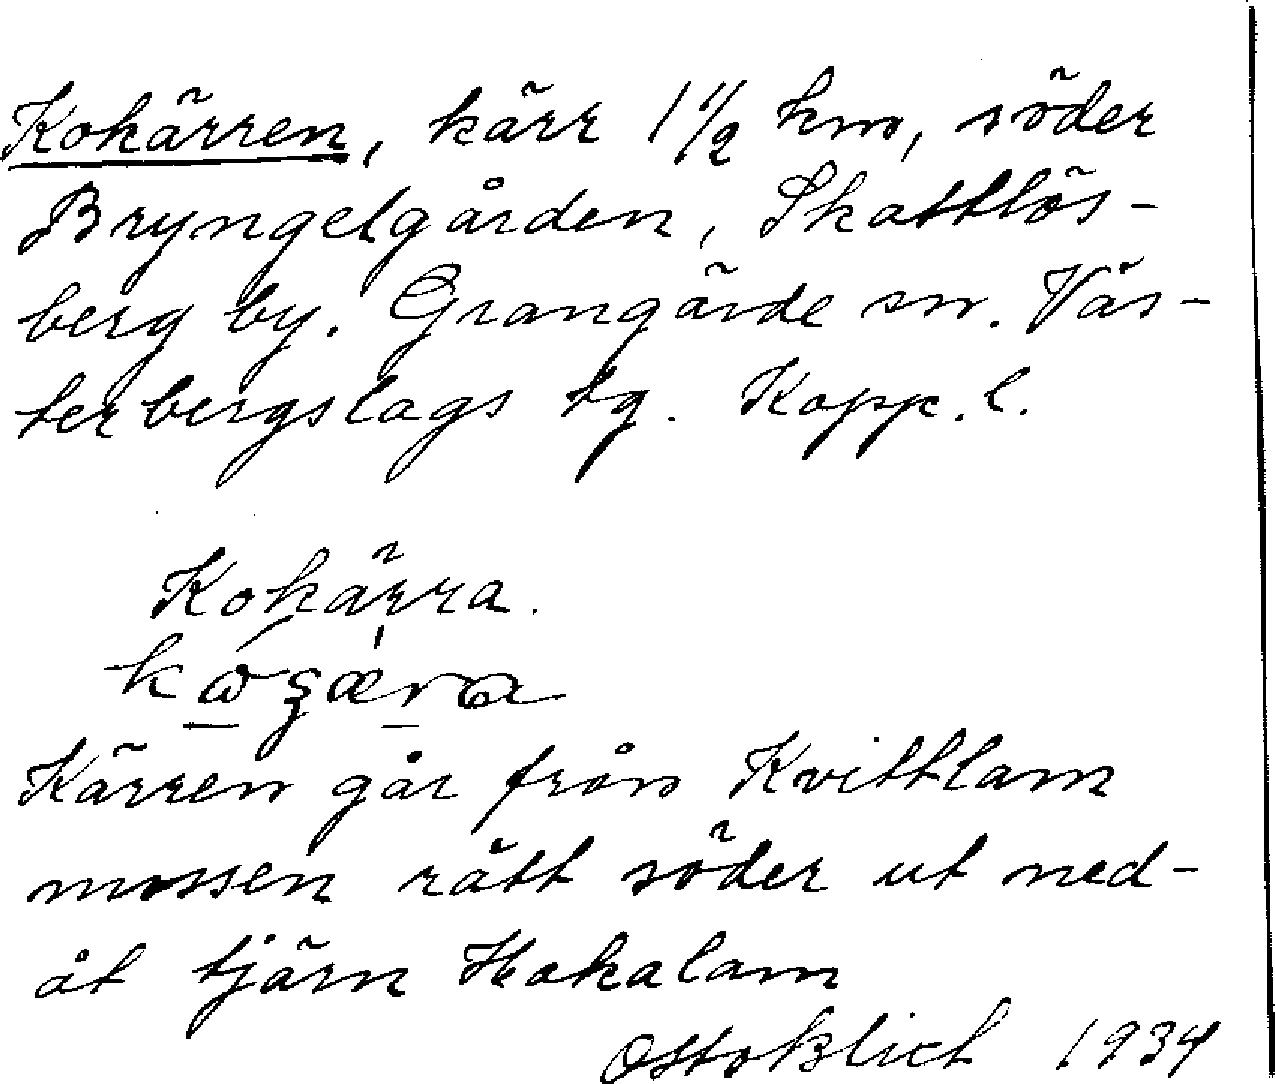 Kokärren, kärr 1 1/2 km, söder
Bryngelgården, Skattlös-
berg by. Grangärde sn. Väs-
terbergslags tg. Kopp. l.
Kokärra.
Kärren går från Kvittlam
mossen rätt söder ut ned-
åt tjärn Hakalam
Otto Blixt 1934